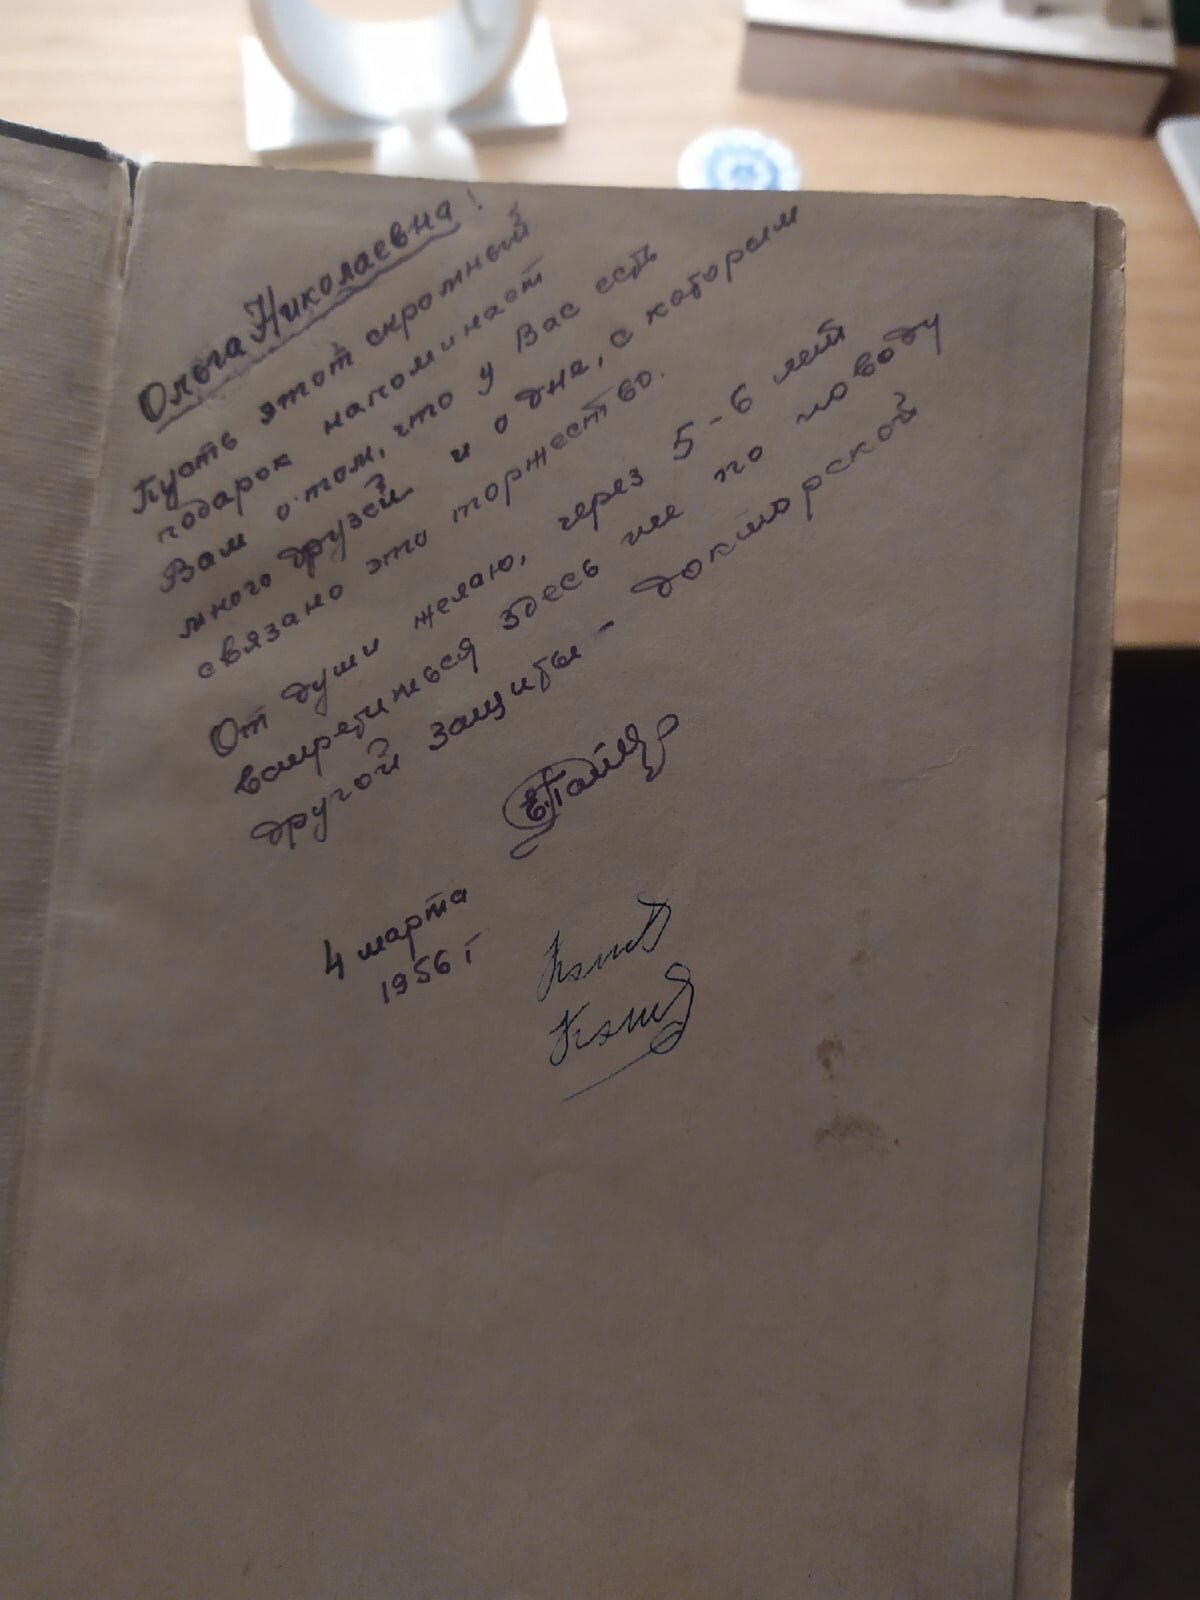 Ольга Николаевна!
Пусть этот скромный
подарок напоминает
Вам о том, что у Вас есть
много друзей и о дне, с которым
связано это торжество.
От души желаю, через 5-6 лет
встретиться здесь же по поводу
другой защиты - докторской
4 марта
1956 г